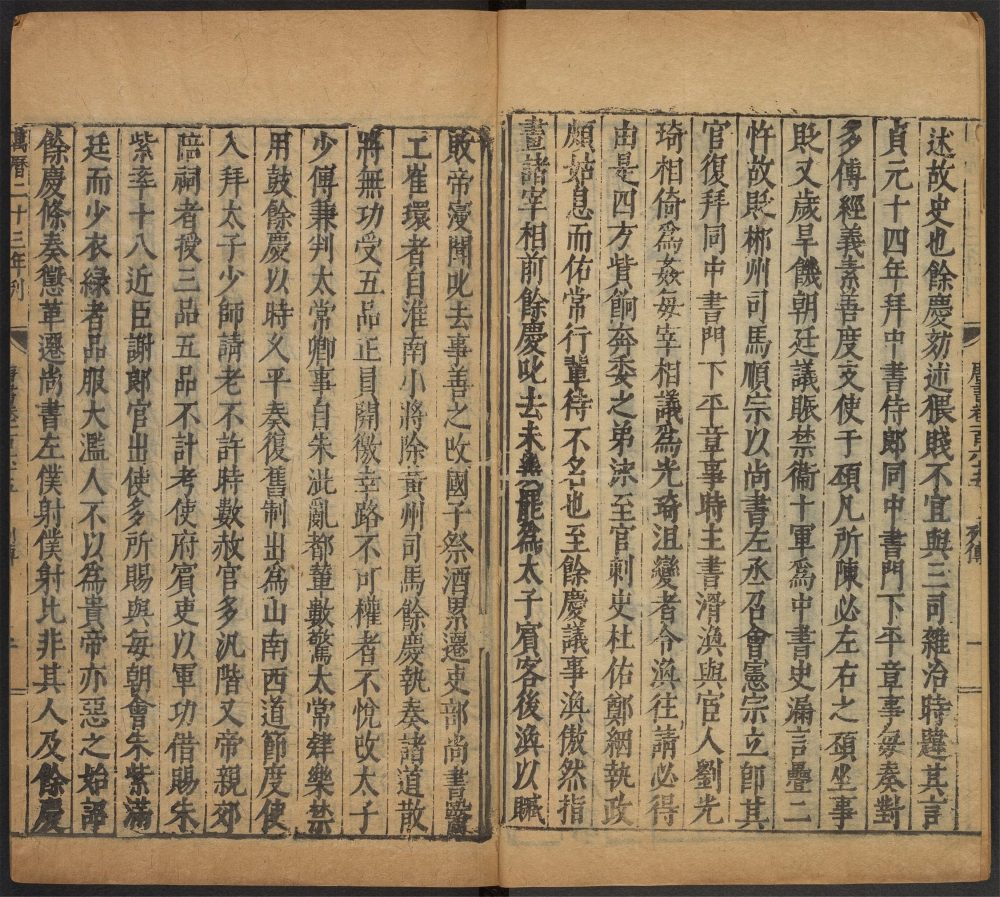 述故史也餘慶劾述猥賤不宜與三司雜治時韙其言
貞元十四年拜中書侍郎同中書門下平章事每奏對
多傅經義素善度支使于𩑺凡所陳必左右之𩑺坐事
貶又歲旱饑朝廷議賑禁衞十軍爲中書史漏言疊二
忤故貶郴州司馬順宗以尚書左丞召會憲宗立卽其
官復拜同中書門下平章事時主書滑渙與宦人劉光
琦相倚爲姦每宰相議爲光琦沮變者令渙往請必得
由是四方貲餉奔委之弟泳至官刺史杜佑鄭絪執政
頗姑息而佑常行輩待不名也至餘慶議事渙傲然指
畫諸宰相前餘慶叱去未幾罷爲太子賓客後渙以贓
敗帝寖聞叱去事善之改國子祭酒累遷吏部尚書醫
工崔環者自淮南小將除黃州司馬餘慶執奏諸道散
將無功受五品正員開徼幸路不可權者不悅改太子
少傅兼判太常卿事自朱泚亂都輦數驚太常肄樂禁
用鼓餘慶以時乂平奏復舊制出爲山南西道節度使
入拜太子少師請老不許時數赦官多汎階又帝親郊
陪祠者授三品五品不計考使府賓吏以軍功借賜朱
紫率十八近臣謝郎官出使多所賜與每朝會朱紫滿
廷而少衣綠者品服大濫人不以爲貴帝亦惡之始詔
餘慶條奏懲革遷尚書左僕射僕射比非其人及餘慶
萬曆二十三年刊